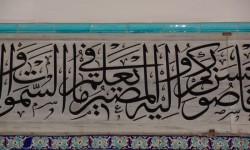 صوركم واليه المصير يعلم ما في السموات و